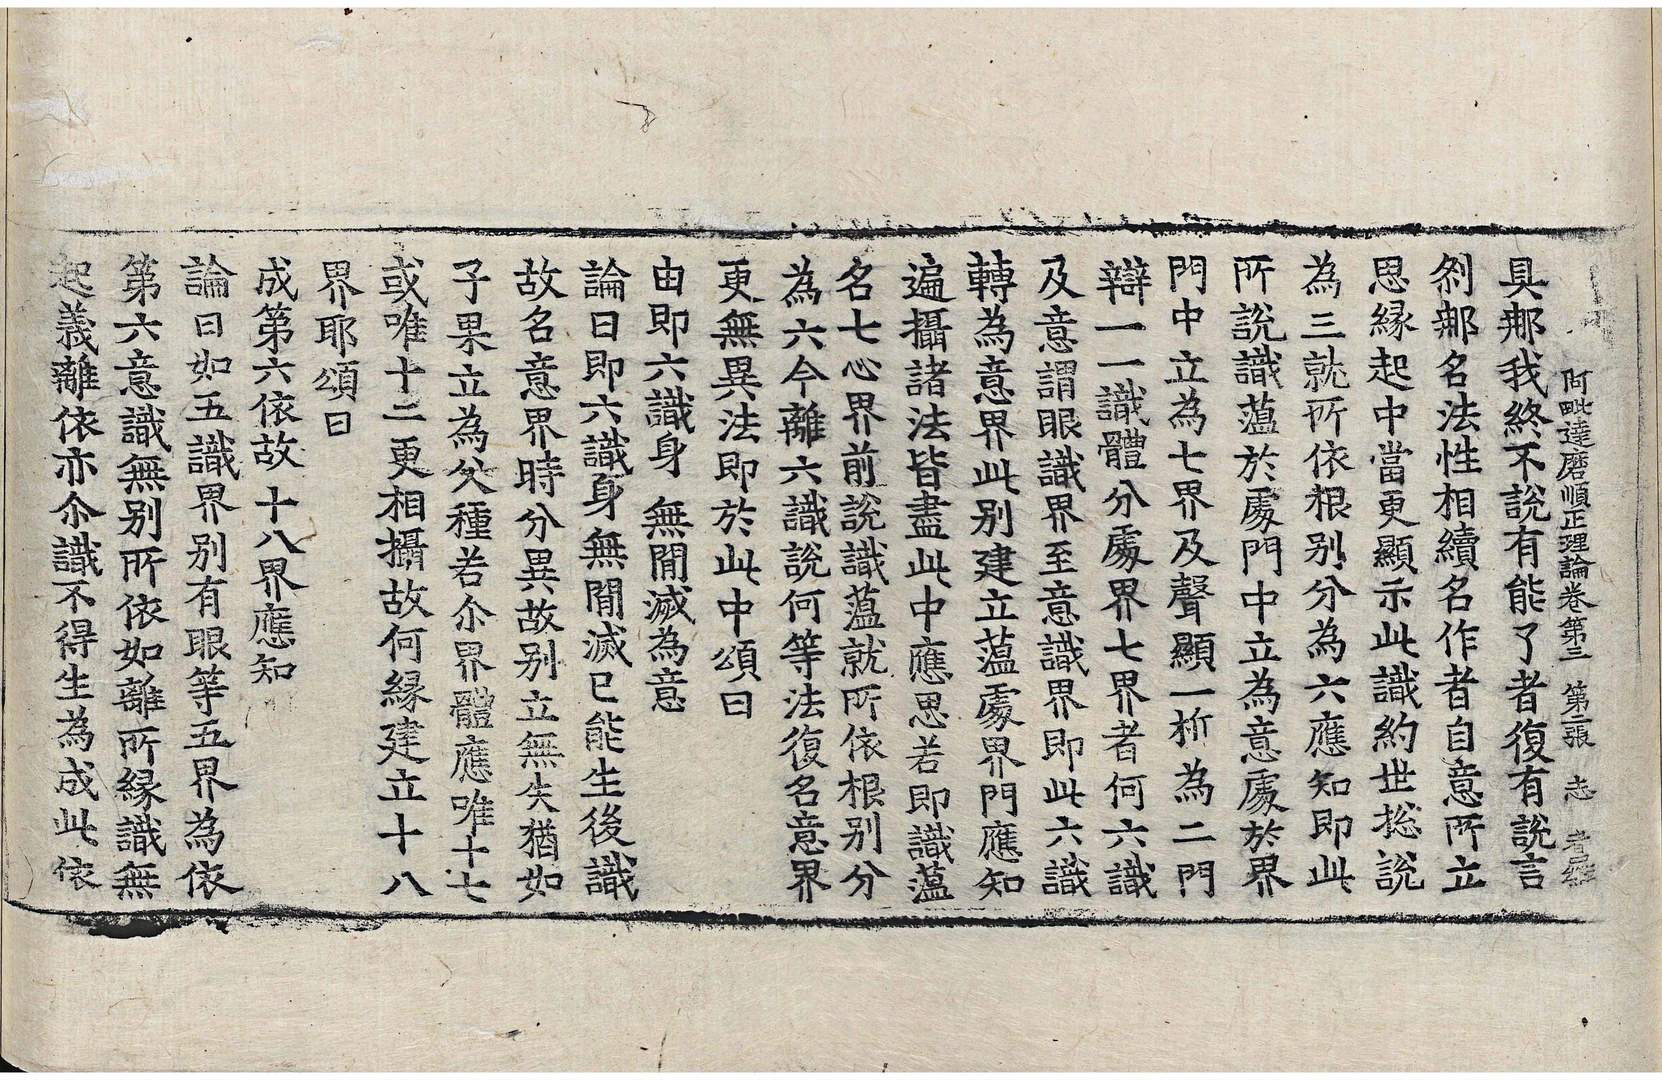 阿毗達磨順正理論卷第三 第二張 志
具那我終不說有能了者復有說言
剎那名法性相續名作者自意所立
思緣起中當更顯示此識約世捴說
為三就所依根別分為六應知即此
所說識蘊於處門中立為意處於界
門中立為七界及聲顯一析為二門
辯一一識體分處界七界者何六識
及意謂眼識界至意識界即此六識
轉為意界此別建立蘊處界門應知
遍攝諸法皆盡此中應思若即識蘊
名七心界前說識蘊就所依根別分
為六今離六識說何等法復名意界
更無異法即於此中頌曰
由即六識身 無間滅為意
論曰即六識身無間滅已能生後識
故名意界時分異故別立無失猶如
子果立為父種若尒界體應唯十七
或唯十二更相攝故何緣建立十八
界耶頌曰
成第六依故 十八界應知
論曰如五識界別有眼等五界為依
第六意識無別所依如離所緣識無
起義離依亦尒識不得生為成此依